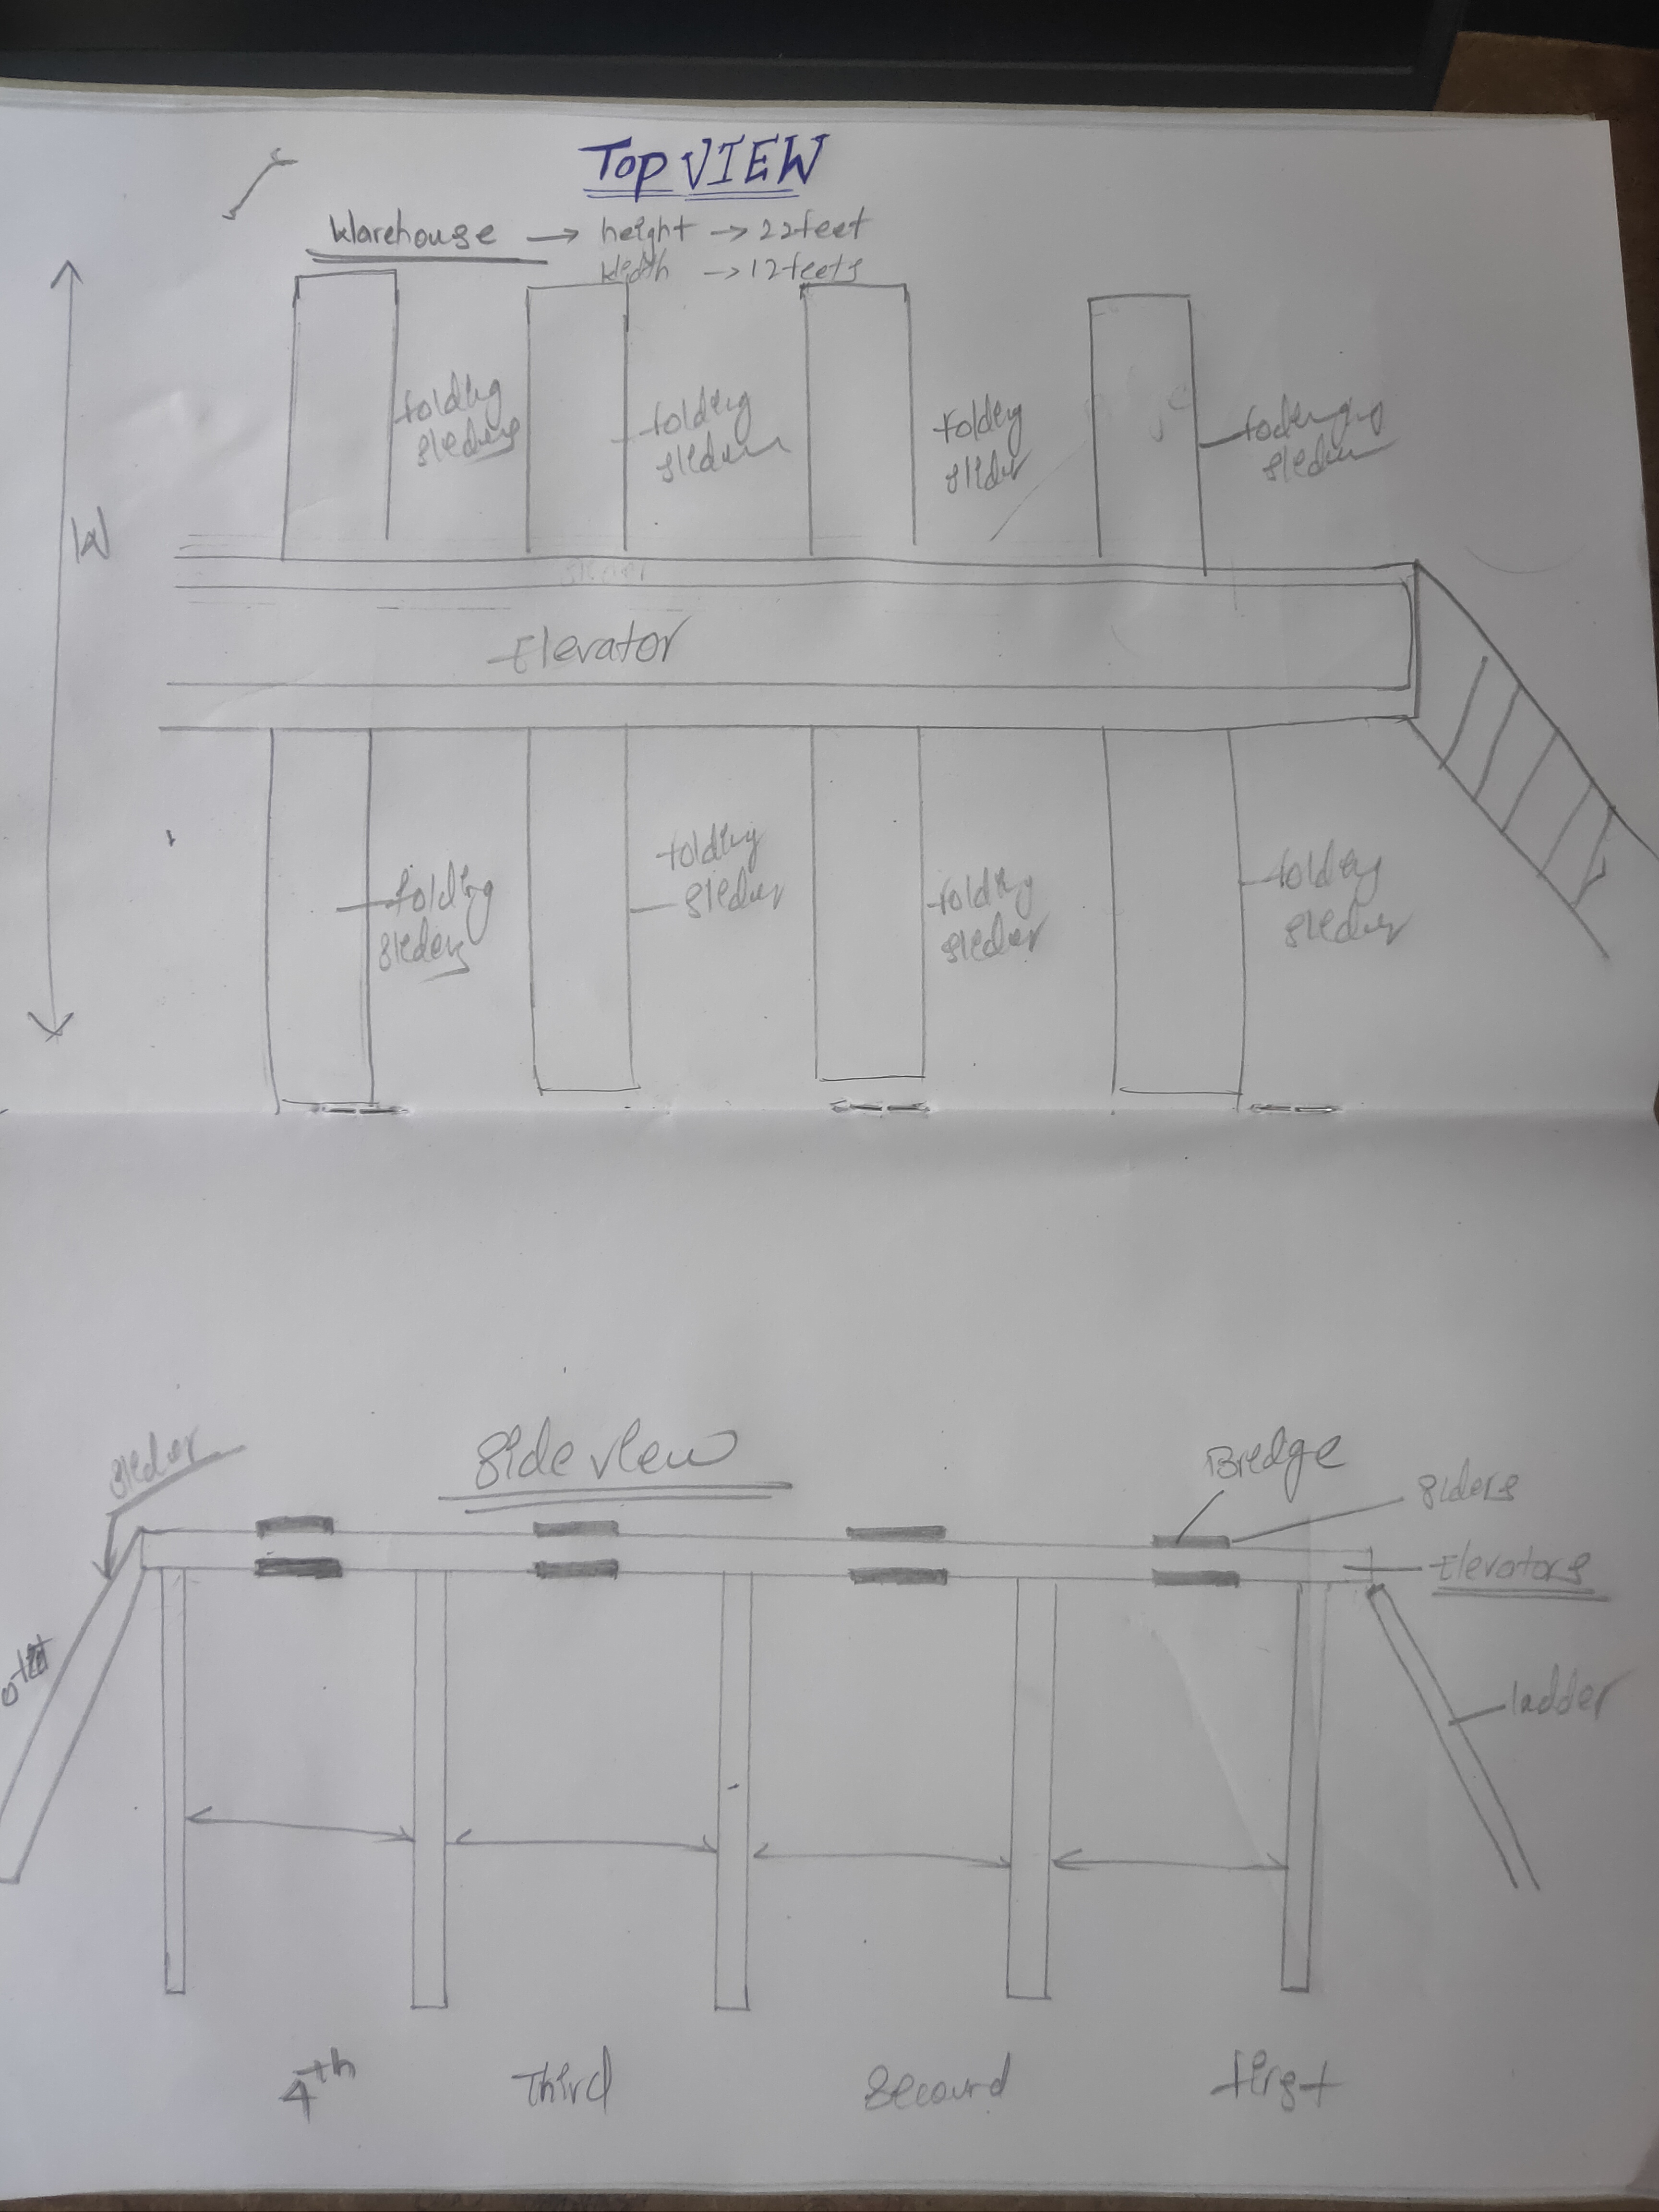 Top VIEW
Warehouse → height → 22feet
Width → 12feets
folding
sliders
folding
slider
folding
slider
slider
W
Elevator
folding
sliders
folding
slider
folding
slider
folding
slider
Side view
slider
Bridge
sliders
Elevators
ladder
4th
Third
Second
first